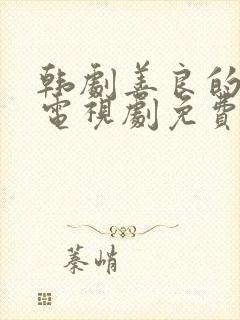 韩劇善良的
電視劇免費
蓁峭